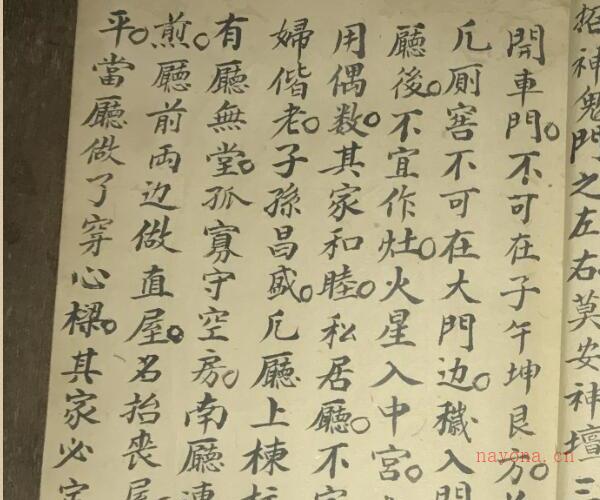 招神鬼門之左右莫安神壇三
開車門。不可在子午坤艮方。
凡厠窖不可在大門边。穢入門
廳後。不宜作灶。火星入中宮。
用偶数。其家和睦。私居廳。不宜
婦偕老。子孫昌盛。凡廳上棟柱
有廳無堂。孤寡守空房。南廳連
煎。廳前両边做直屋。名抬丧屋
平。當廳做了穿心樑。其家必定
nayona.cn